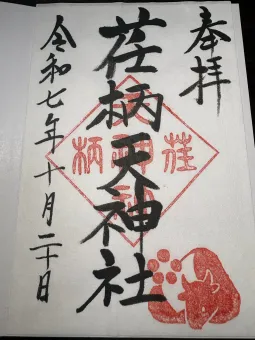 奉拝
荏柄天神社
令和七年十月二十日
荏
柄